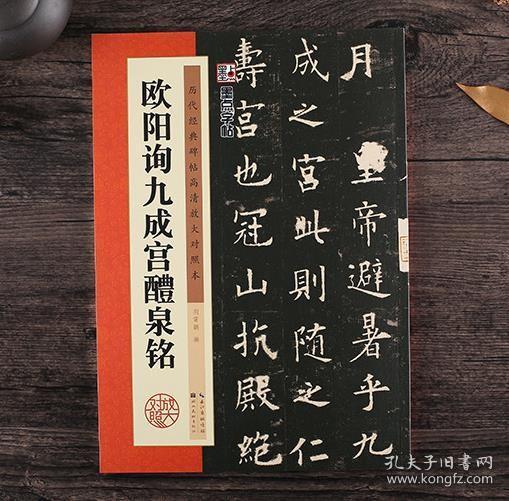 月皇帝避暑乎九
成之宫此則随之仁
壽宫也冠山抗殿絶
墨点字帖
历代经典碑帖高清放大对照本
欧阳询九成宫醴泉铭
放大对照
孔夫子旧书网
www.kongfz.com